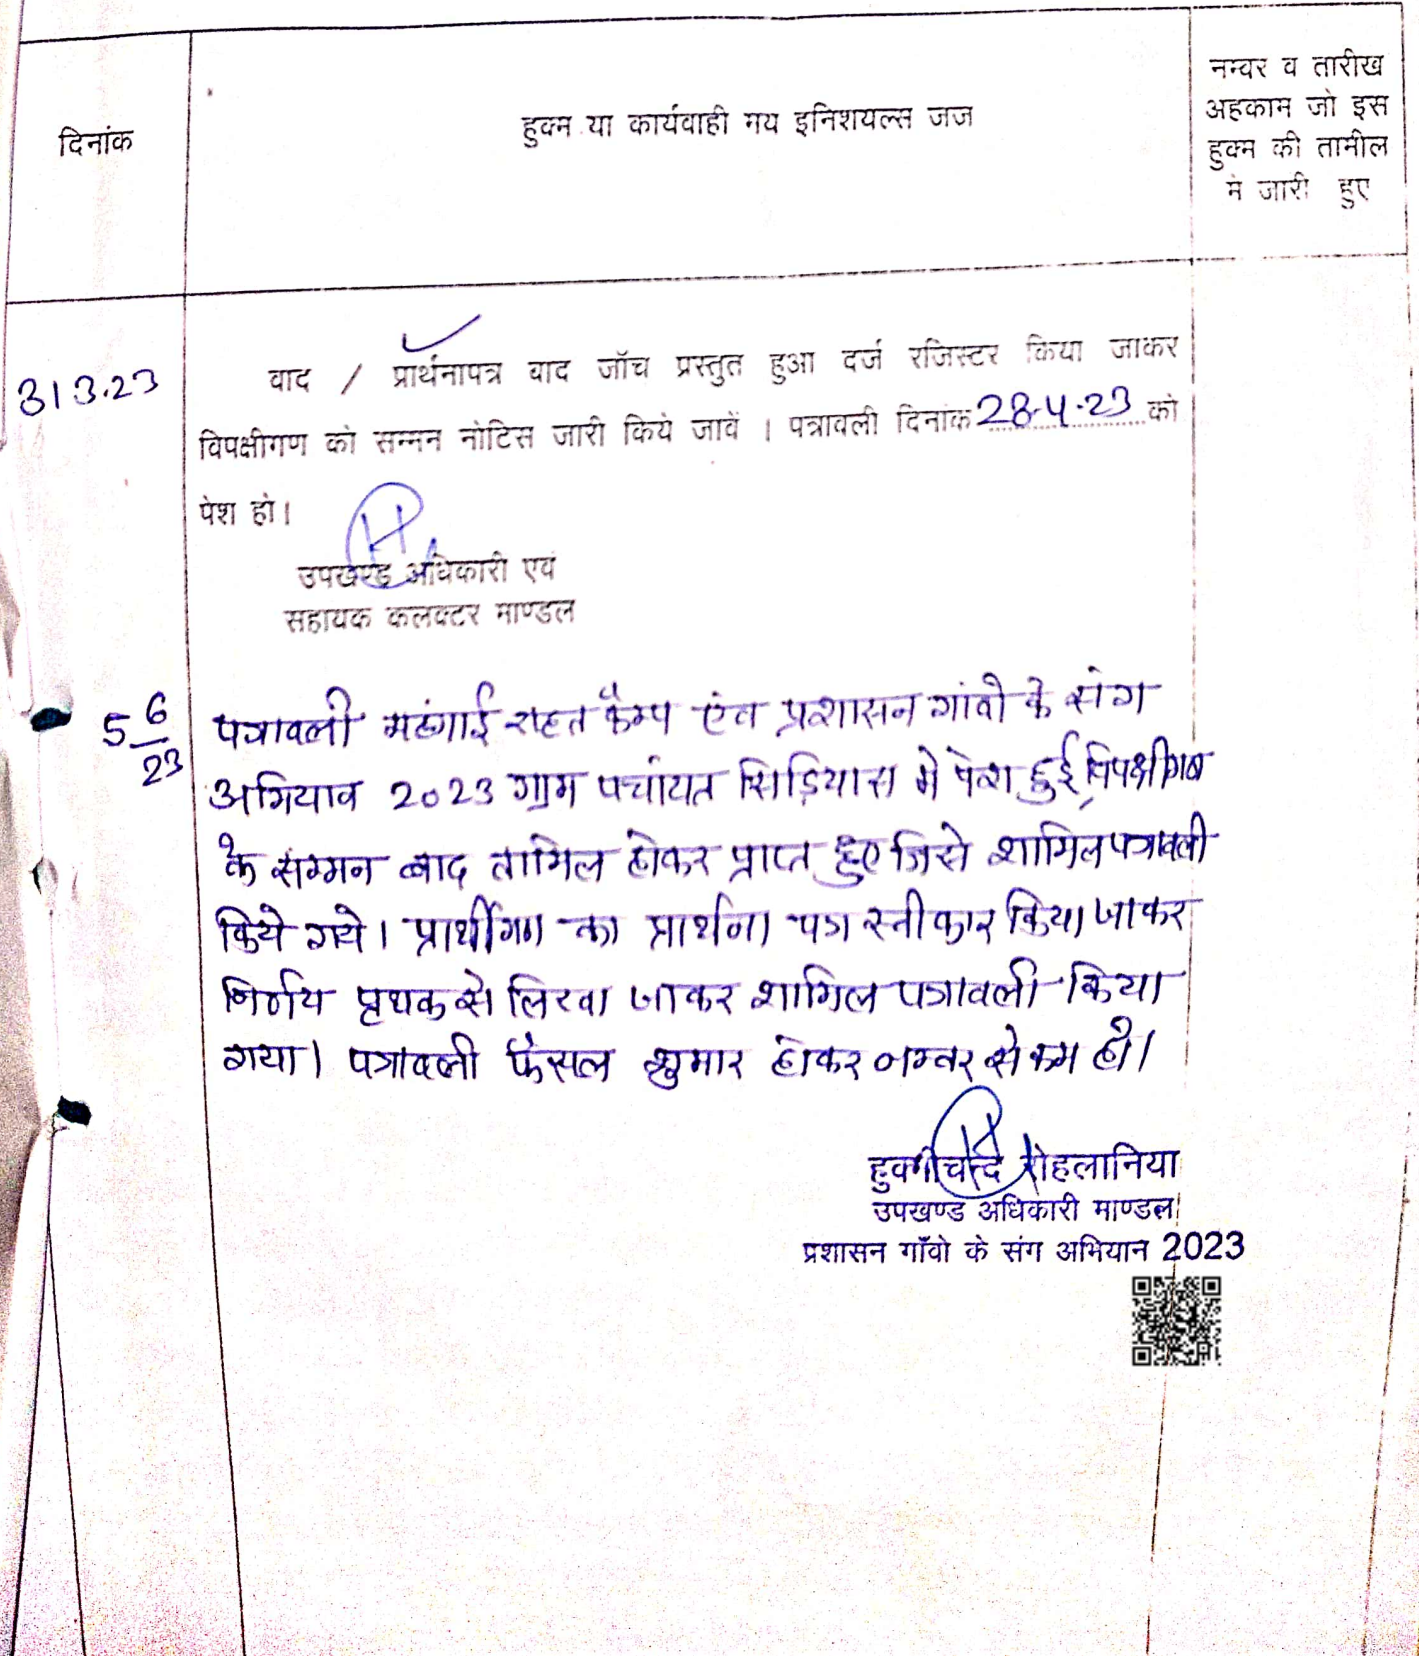 दिनांक
हुक्म या कार्यवाही मय इनिशयल्स जज
नम्वर व तारीख
अहकाम जो इस
हुक्म की तामील
में जारी हुए
313.23
वाद / प्रार्थनापत्र वाद जॉच प्रस्तुत हुआ दर्ज रजिस्टर किया जाकर
विपक्षीगण को सम्मन नोटिस जारी किये जावें । पत्रावली दिनांक 28.4.23 को
पेश हो।
उपखण्ड अधिकारी एवं
सहायक कलक्टर माण्डल
5 6/23
पत्रावली महंगाई राहत कैम्प एंव प्रशासन गांवो के संग
अभियान 2023 ग्राम पचांयत सिड़ियास मे पेश हुई, विपक्षीगण
के सम्मन बाद तामिल होकर प्राप्त हुए जिसे शामिल पत्रावली
किये गये। प्रार्थीगण का प्रार्थना पत्र स्वीकार किया जाकर
निर्णय पृथक से लिखा जाकर शामिल पत्रावली किया
गया। पत्रावली फैसल शुमार होकर नम्बर से कम हो।
हुक्मीचन्द रोहलानिया
उपखण्ड अधिकारी माण्डल
प्रशासन गॉवो के संग अभियान 2023